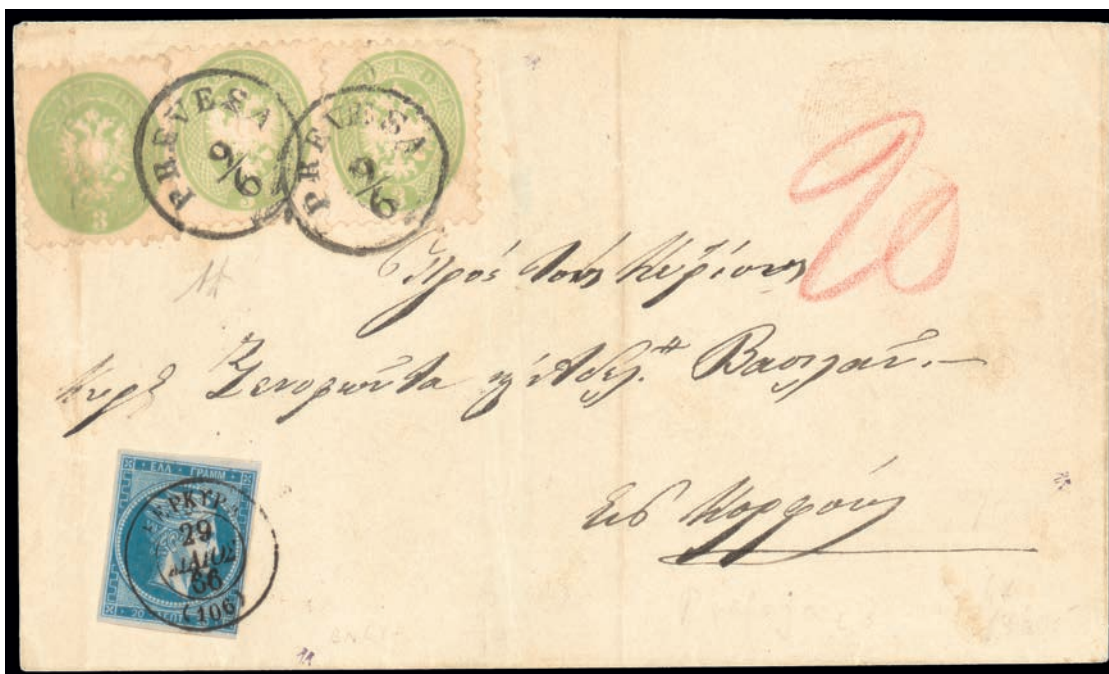 3
PREVESA
9/6
PREVESA
9/6
20
Πρὸς τοὺς Κυρίους
Κυρ Ξενοφῶντα κ Ἀδελ. Βασιλᾶν. —
Εἰς Κορφούς
ΕΛΛ · ΓΡΑΜΜ
ΚΕΡΚΥΡΑ
29
ΜΑΙΟΣ
66
(106)
20 ΛΕΠ